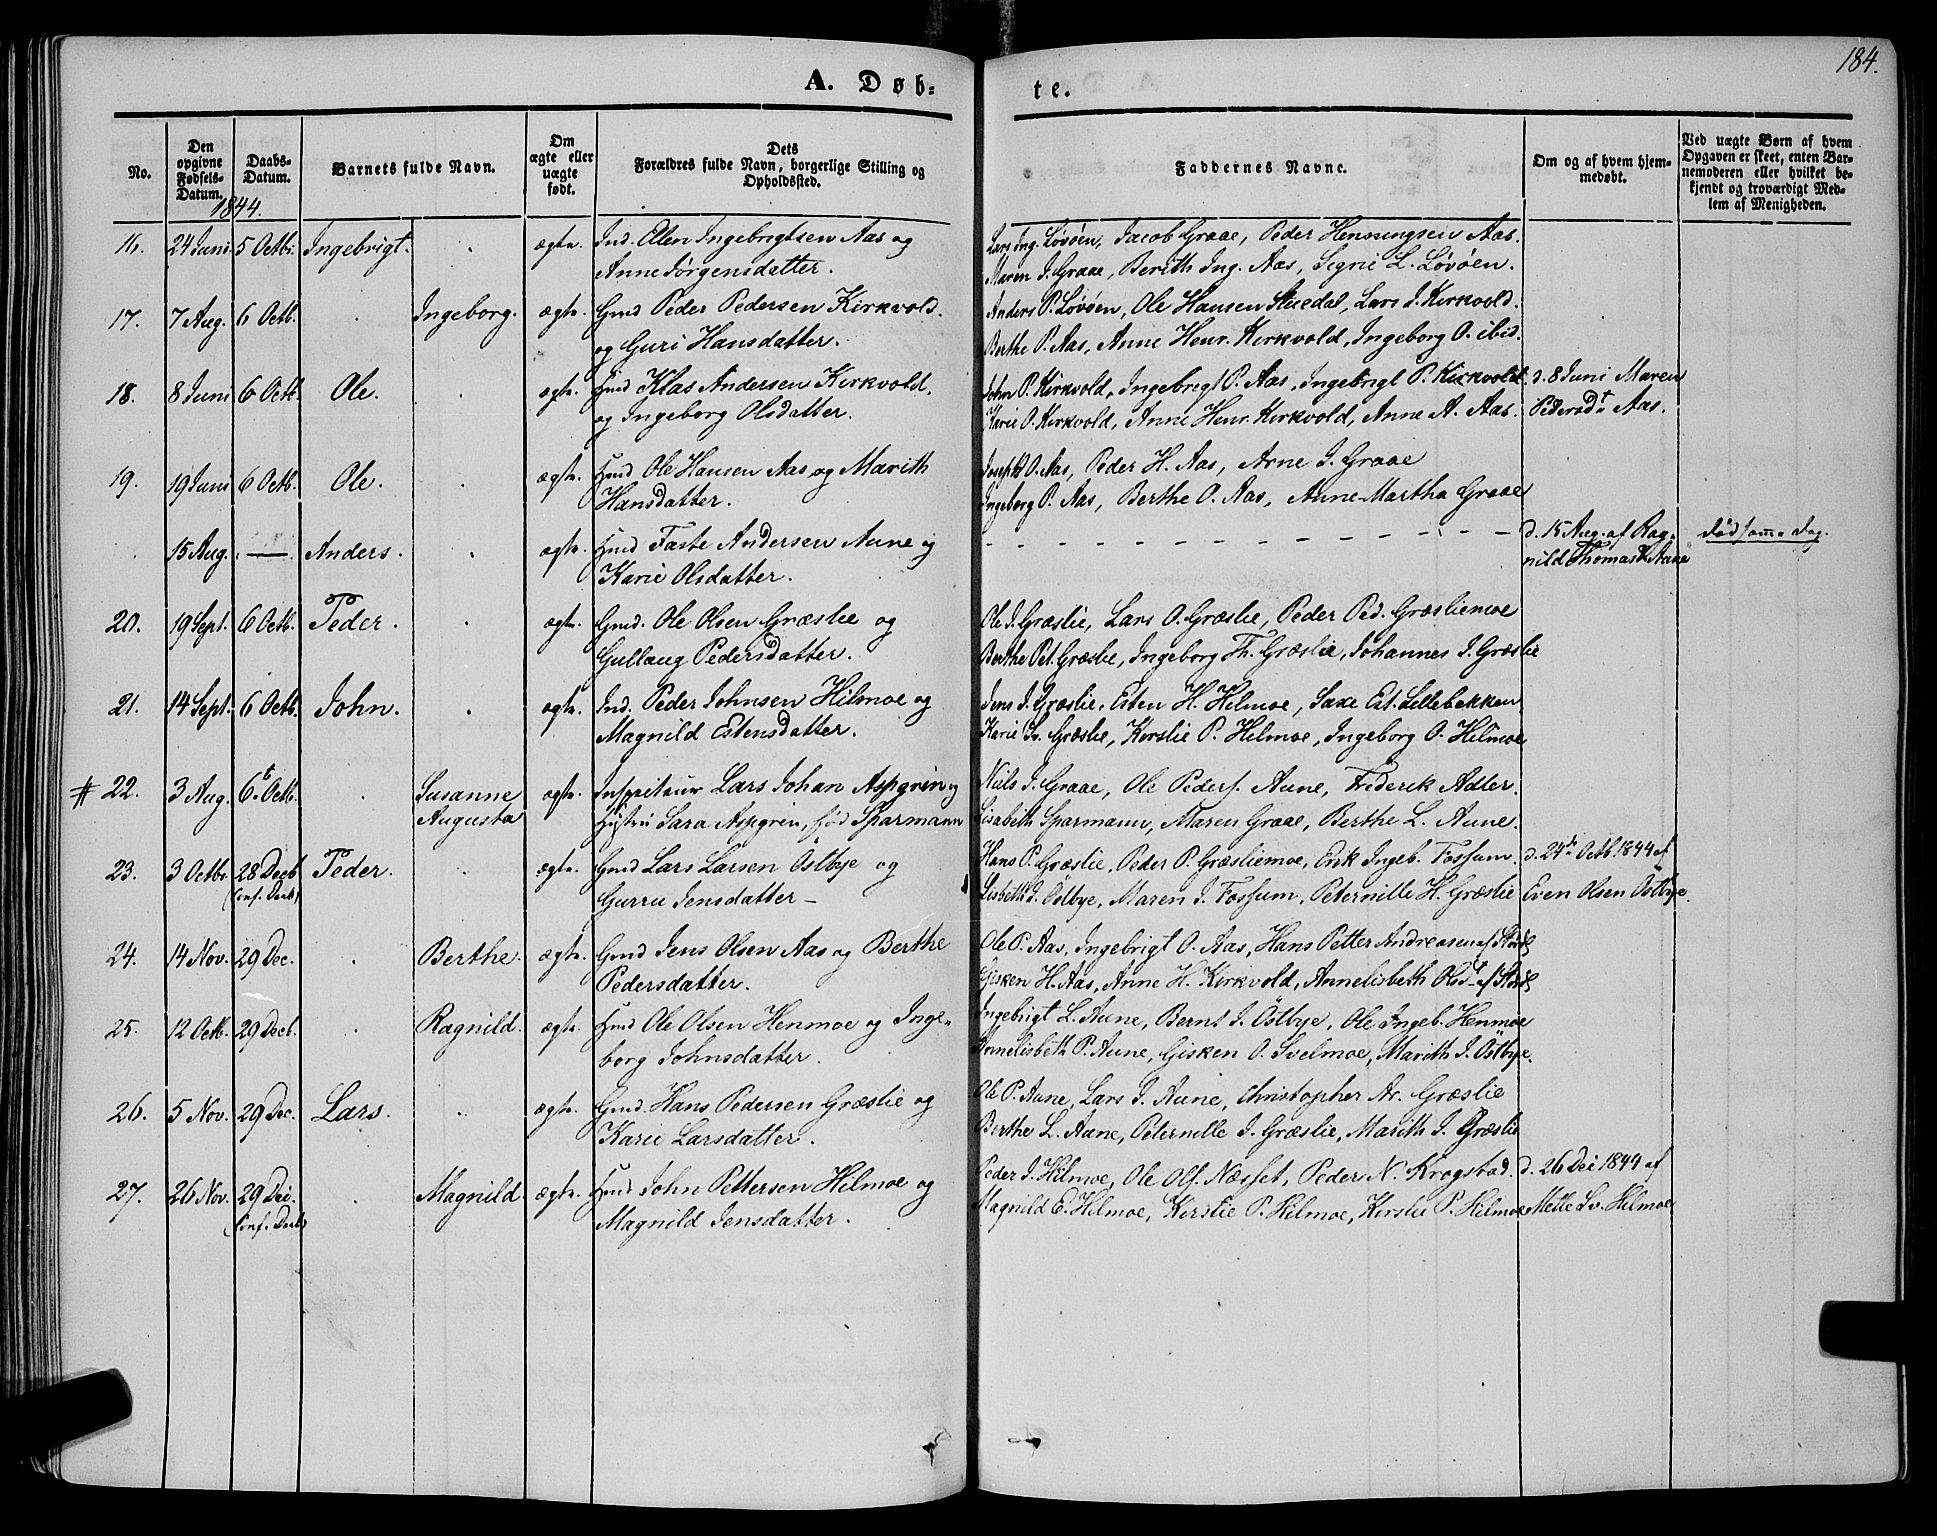 184.
A. Døb= te.
No.
Den opgivne Fødsels-Datum.
Daabs-Datum.
Barnets fulde Navn.
Om ægte eller uægte født.
Dets Forældres fulde Navn, borgerlige Stilling og Opholdssted.
Faddernes Navne.
Om og af hvem hjem-medøbt.
Ved uægte Børn af hvem Opgaven er skeet, enten Bar-nemoderen eller hvilket be-kjendt og troværdigt Med-lem af Menigheden.
1844.
16. 24 Juni 5 Octbr. Ingebrigt. ægte. Ind. Elen Ingebrigtsen Aas og Lars Ing. Løvøen, Jacob Graae, Peder Henningsen Aas.
Anne Jørgensdatter. Maren J. Graae, Berith Ing. Aas, Sigrie L. Løvøen.
17. 7 Aug. 6 Octb. Ingeborg. ægte. Gmd Peder Pedersen Kirkvold. Anders P. Løvøen, Ole Hansen Stuedal, Lars J. Kirkvold.
og Guri Hansdatter. Berthe P. Aas, Anne Henr. Kirkvold, Ingeborg O. ibid.
18. 8 Juni 6 Octb. Ole. ægte. Hmd Klas Andersen Kirkvold, John P. Kirkvold, Ingebrigt P. Aas, Ingebrigt P. Kirkvold. d. 8 Juni Maren
og Ingeborg Olsdatter. Karie O. Kirkvold, Anne Henr. Kirkvold, Anne A. Aas. Pedersdt. Aas.
19. 19 Juni 6 Octb. Ole. ægte. Hmd Ole Hansen Aas og Marith Joseph O. Aas, Peder H. Aas, Arne J. Graae
Hansdatter. Ingeborg P. Aas, Berthe O. Aas, Anne Martha Graae
15 Aug. — Anders. ægte. Hmd Faste Andersen Aune og - - - - - - - - - - - - - d. 15 Aug. af Rag-
Karie Olsdatter. nild Thomasdt. Aune død samme Dag.
20. 19 Sept. 6 Octb. Peder. ægte. Gmd. Ole Olsen Græslie og Ole J. Græslie, Lars O. Græslie, Peder Ped. Græsliemoe
Gullaug Pedersdatter. Berthe Pet. Græslie, Ingeborg Th. Græslie, Johannes J. Græslie
21. 14 Sept. 6 Octb. John. ægte. Ind. Peder Johnsen Hilmoe og Jens J. Græslie, Esten H. Hilmoe, Saxe Est. Lillebakken
Magnild Estensdatter. Karie Sv. Græslie, Kirslie P. Hilmoe, Ingeborg O. Hilmoe
# 22. 3 Aug. 6t. Octb. Susanne ægte. Inspecteur Lars Johan Aspgren og Niels J. Graae, Ole Peders. Aune, Frederik Adler.
Augusta Hustru Sara Aspgren, fød Sparmann Lisabeth Sparmann, Maren Graae, Berthe L. Aune.
23. 3 Octbr. 28 Decb Peder. ægte. Gmd Lars Larsen Östbye og Hans P. Græslie, Peder P. Græsliemoe, Erik Ingeb. Fossum. d. 24de Octb 1844 af
(Conf. Daab) Gurru Jensdatter – Lisbeth J. Östbye, Maren J. Fossum, Peternille H. Græslie Even Olsen Östbye.
24. 14 Nov. 29 Dec. Berthe. ægte. Gmd Jens Olsen Aas og Berthe Ole P. Aas, Ingebrigt O. Aas, Hans Petter Andreasen af
Pedersdatter. Gisken H. Aas, Anne H. Kirkvold, Annelisbeth Olsdt. af
25. 12 Octb. 29 Decb. Ragnild. ægte. Hmd Ole Olsen Henmoe og Inge- Ingebrigt L. Aune, Bernt J. Östbye, Ole Ingeb. Henmoe
borg Johnsdatter. Annelisbeth P. Aune, Gisken O. Svelmoe, Marith J. Östbye.
26. 5 Nov. 29 Dec. Lars. ægte. Gmd. Hans Pedersen Græslie og Ole P. Aune, Lars J. Aune, Christopher Ar. Græslie
Karie Larsdatter. Berthe L. Aune, Peternille J. Græslie, Marith J. Græslie
27. 26 Nov. 29 Dec. Magnild. ægte. Hmd John Pettersen Hilmoe og Peder J. Hilmoe, Ole Ols. Næsset, Peder N. Krogstad. d. 26 Dec 1844 af
(Conf. Daab) Magnild Jensdatter. Magnild E. Hilmoe, Kirslie P. Hilmoe, Kirslie P. Hilmoe Mette Sv. Hilmoe